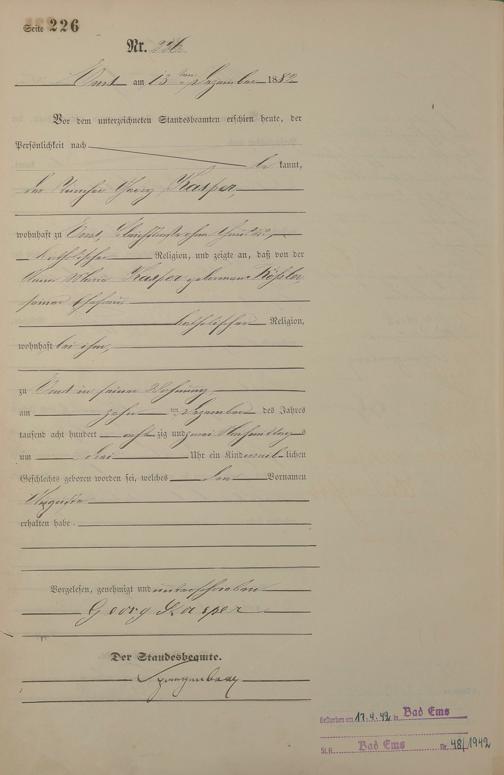 Seite 226
Nr. 226
Ems am 13 ten Dezember 1882
Vor dem unterzeichneten Standesbeamten erschien heute, der
Persönlichkeit nach
be kannt,
der Georg Kasper,
wohnhaft zu Ems,
katholischer Religion, und zeigte an, daß von der
Anna Maria Kasper geborenen
seiner Ehefrau
katholischer Religion,
wohnhaft bei ihm,
zu Ems in seiner Wohnung
am zehn ten Dezember des Jahres
tausend acht hundert acht zig und zwei Nachmittags
um drei Uhr ein Kind lichen
Geschlechts geboren worden sei, welches den Vornamen
erhalten habe
Vorgelesen, genehmigt und unterschrieben
Georg Kasper
Der Standesbeamte.
Gestorben am 17.4.42 in Bad Ems
St.A. Bad Ems Nr. 48/1942